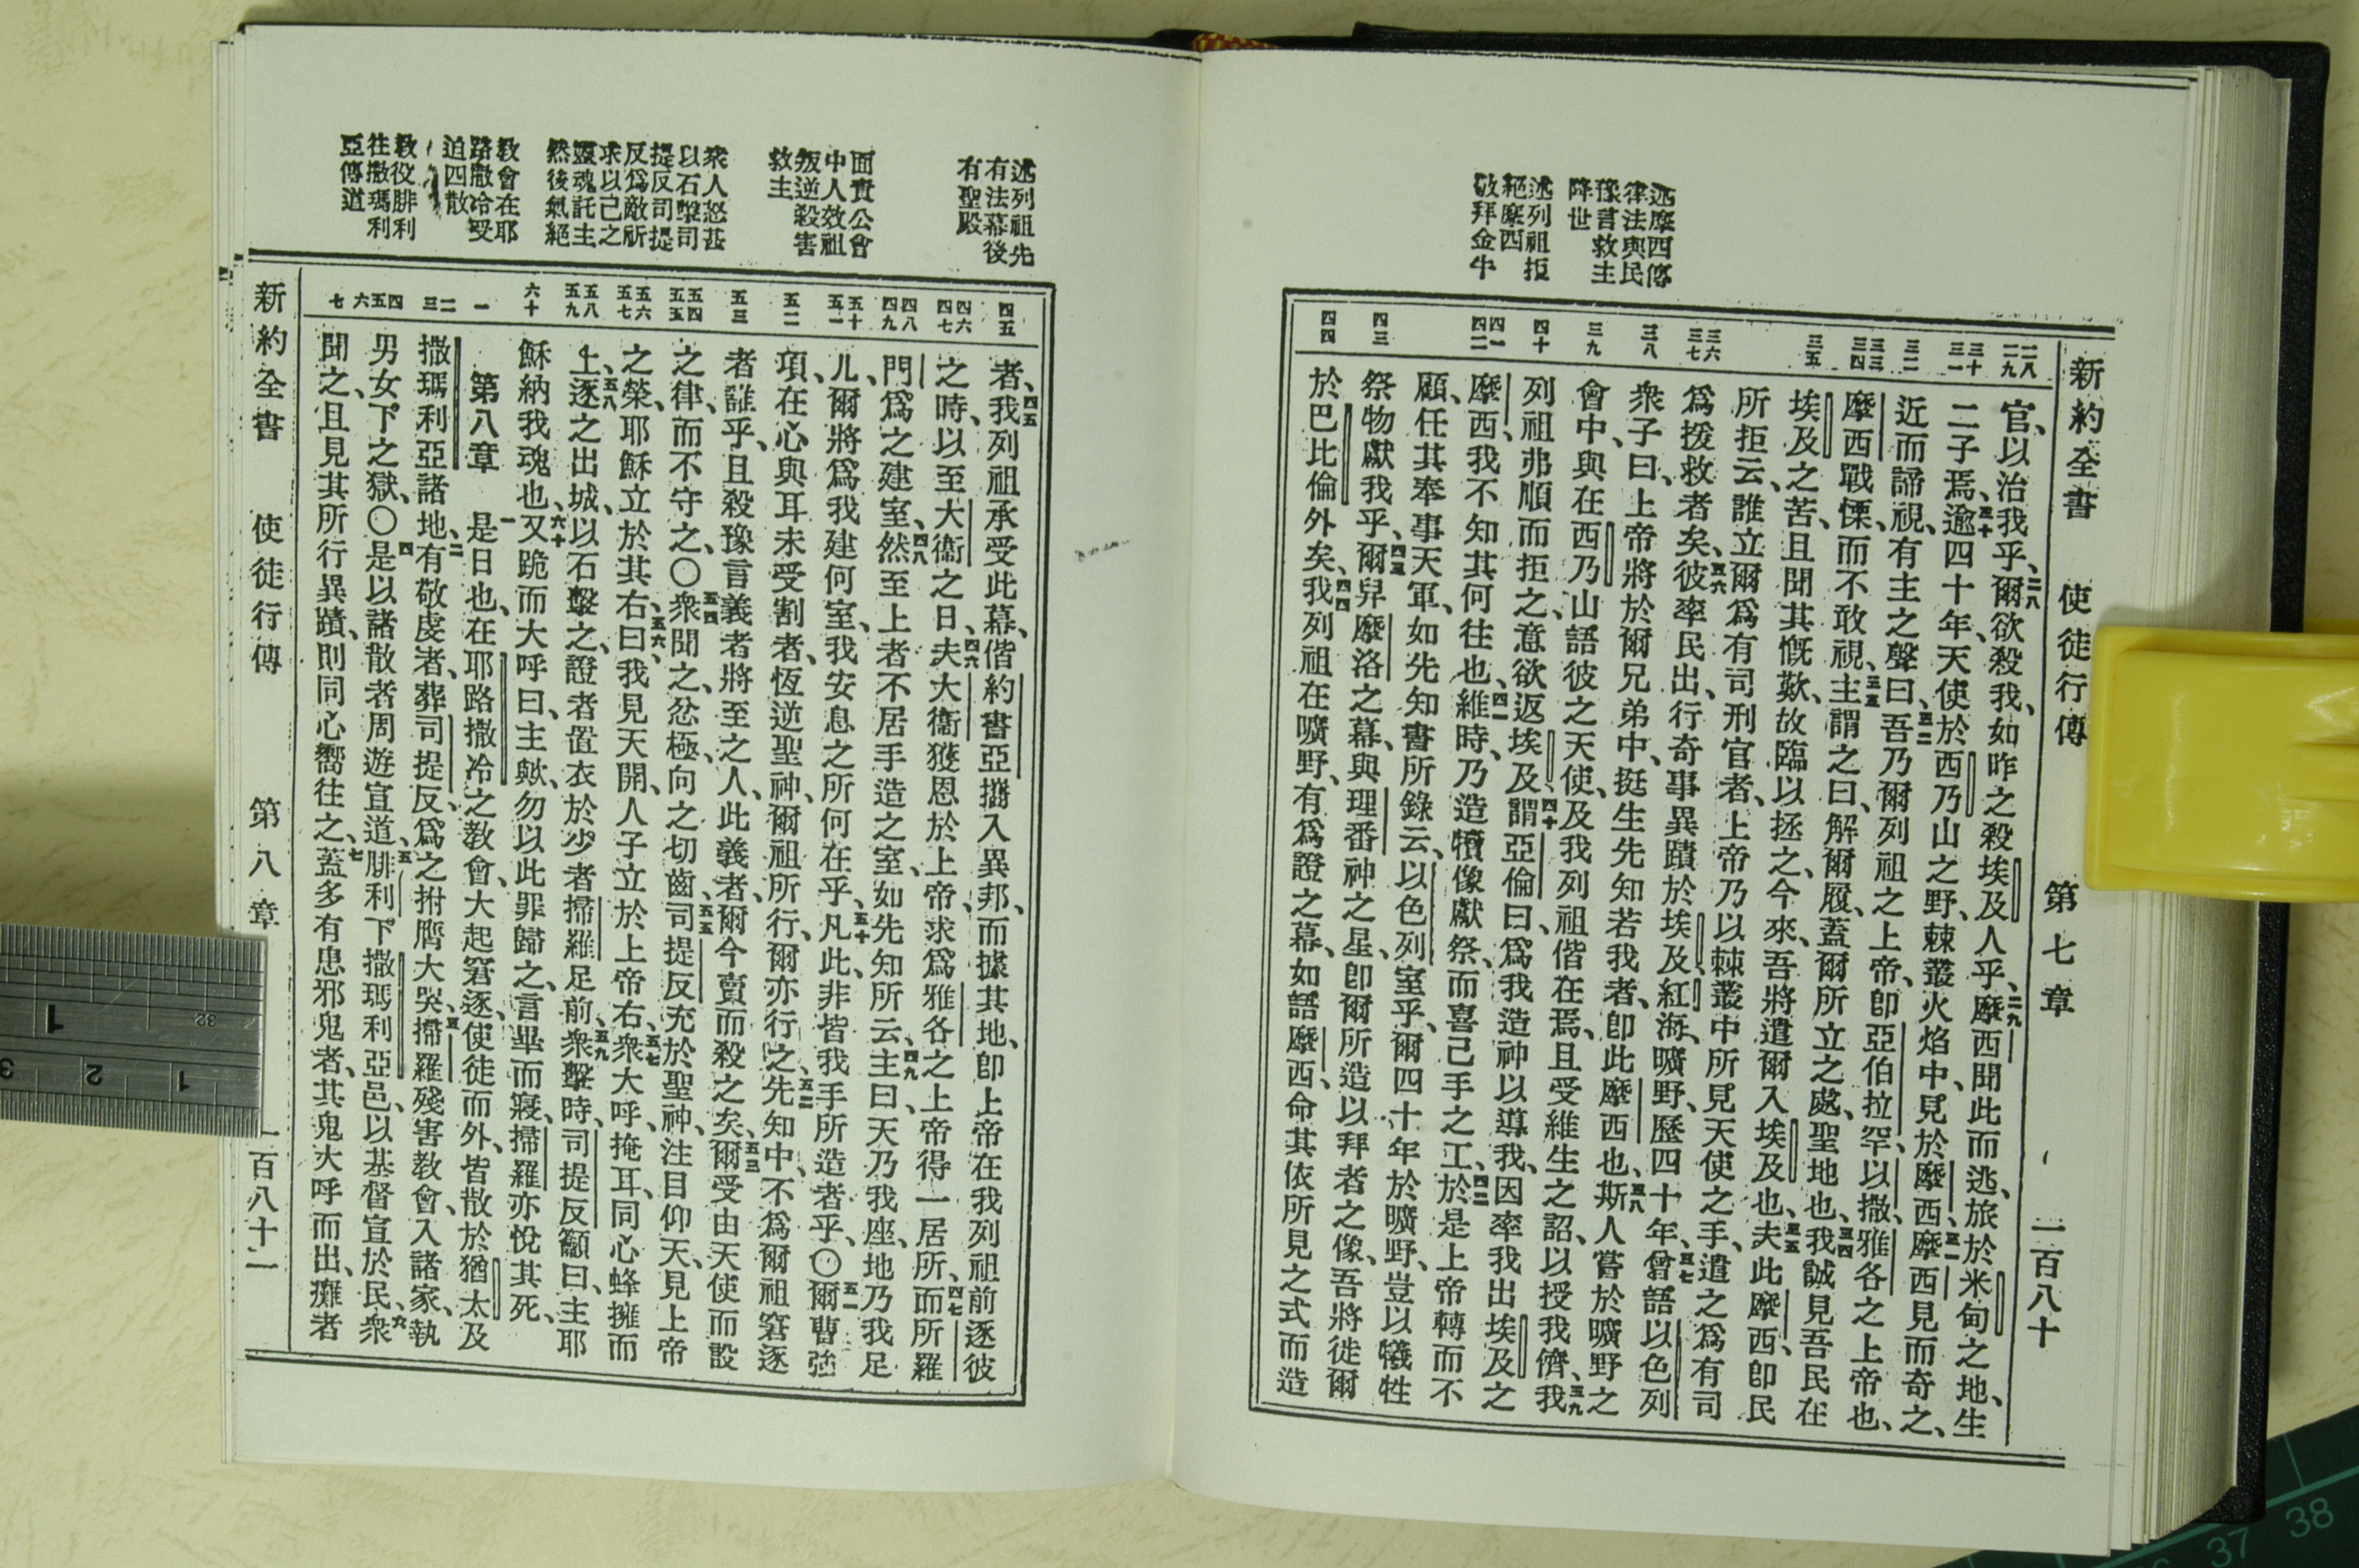 新約全書 使徒行傳 第七章 一百八十
述摩西傳
律法與民
豫言救主
降世
述列祖拒
絕摩西
敬拜金牛
二八
二九
三十
三一
三二
三三
三四
三五
三六
三七
三八
三九
四十
四一
四二
四三
四四
官、以治我乎、二八爾欲殺我、如昨之殺埃及人乎、二九摩西聞此而逃、旅於米甸之地、生
二子焉、三十逾四十年、天使於西乃山之野、棘叢火焰中、見於摩西、三一摩西見而奇之、
近而諦視、有主之聲曰、三二吾乃爾列祖之上帝、卽亞伯拉罕、以撒、雅各之上帝也、
摩西戰慄、而不敢視、三三主謂之曰、解爾履、蓋爾所立之處、聖地也、三四我誠見吾民在
埃及之苦、且聞其慨歎、故臨以拯之、今來、吾將遣爾入埃及也、三五夫此摩西、卽民
所拒云、誰立爾爲有司刑官者、上帝乃以棘叢中所見天使之手、遣之爲有司
爲援救者矣、三六彼率民出、行奇事異蹟於埃及、紅海、曠野、歷四十年、三七曾語以色列
衆子曰、上帝將於爾兄弟中、挺生先知若我者、卽此摩西也、三八斯人嘗於曠野之
會中、與在西乃山語彼之天使、及我列祖偕在焉、且受維生之詔、以授我儕、三九我
列祖弗順而拒之、意欲返埃及、四十謂亞倫曰、爲我造神以導我、因率我出埃及之
摩西、我不知其何往也、四一維時、乃造犢像獻祭、而喜己手之工、四二於是上帝轉而不
顧、任其奉事天軍、如先知書所錄云、以色列室乎、爾四十年於曠野、豈以犧牲
祭物獻我乎、四三爾舁摩洛之幕、與理番神之星、卽爾所造以拜者之像、吾將徙爾
於巴比倫外矣、四四我列祖在曠野、有爲證之幕、如語摩西、命其依所見之式而造
述列祖先
有法幕後
有聖殿
面責公會
中人效祖
叛逆殺害
救主
衆人怒甚
以石擊司
提反司提
反爲敵祈
求以己之
靈魂託主
然後氣絕
敎會在耶
路撒冷受
迫四散
敎役腓利
往撒瑪利
亞傳道
四五
四六
四七
四八
四九
五十
五一
五二
五三
五四
五五
五六
五七
五八
五九
六十
一
二
三
四
五
六
七
者、四五我列祖承受此幕、偕約書亞攜入異邦、而據其地、卽上帝在我列祖前逐彼
之時、以至大衞之日、四六夫大衞獲恩於上帝、求爲雅各之上帝得一居所、四七而所羅
門、爲之建室、四八然至上者不居手造之室、如先知所云、四九主曰、天乃我座、地乃我足
儿、爾將爲我建何室、我安息之所何在乎、五十凡此、非皆我手所造者乎、〇五一爾曹強
項、在心與耳未受割者、恆逆聖神、爾祖所行、爾亦行之、五二先知中、不爲爾祖窘逐
者誰乎、且殺豫言義者將至之人、此義者、爾今賣而殺之矣、五三爾受由天使而設
之律、而不守之、〇五四衆聞之、忿極、向之切齒、五五司提反充於聖神、注目仰天、見上帝
之榮、耶穌立於其右、五六曰、我見天開、人子立於上帝右、五七衆大呼、掩耳、同心蜂擁而
上、五八逐之出城、以石擊之、證者置衣於少者掃羅足前、五九衆擊時、司提反籲曰、主耶
穌納我魂也、六十又跪而大呼曰、主歟、勿以此罪歸之、言畢而寢、掃羅亦悅其死、
第八章 一是日也、在耶路撒冷之敎會、大起窘逐、使徒而外、皆散於猶太及
撒瑪利亞諸地、二有敬虔者、葬司提反、爲之拊膺大哭、三掃羅殘害敎會、入諸家、執
男女、下之獄、〇四是以諸散者周遊宣道、五腓利下撒瑪利亞邑、以基督宣於民、六衆
聞之、且見其所行異蹟、則同心嚮往之、七蓋多有患邪鬼者、其鬼大呼而出、癱者
新約全書 使徒行傳 第八章 一百八十一
1
32
1
2
3
37
38